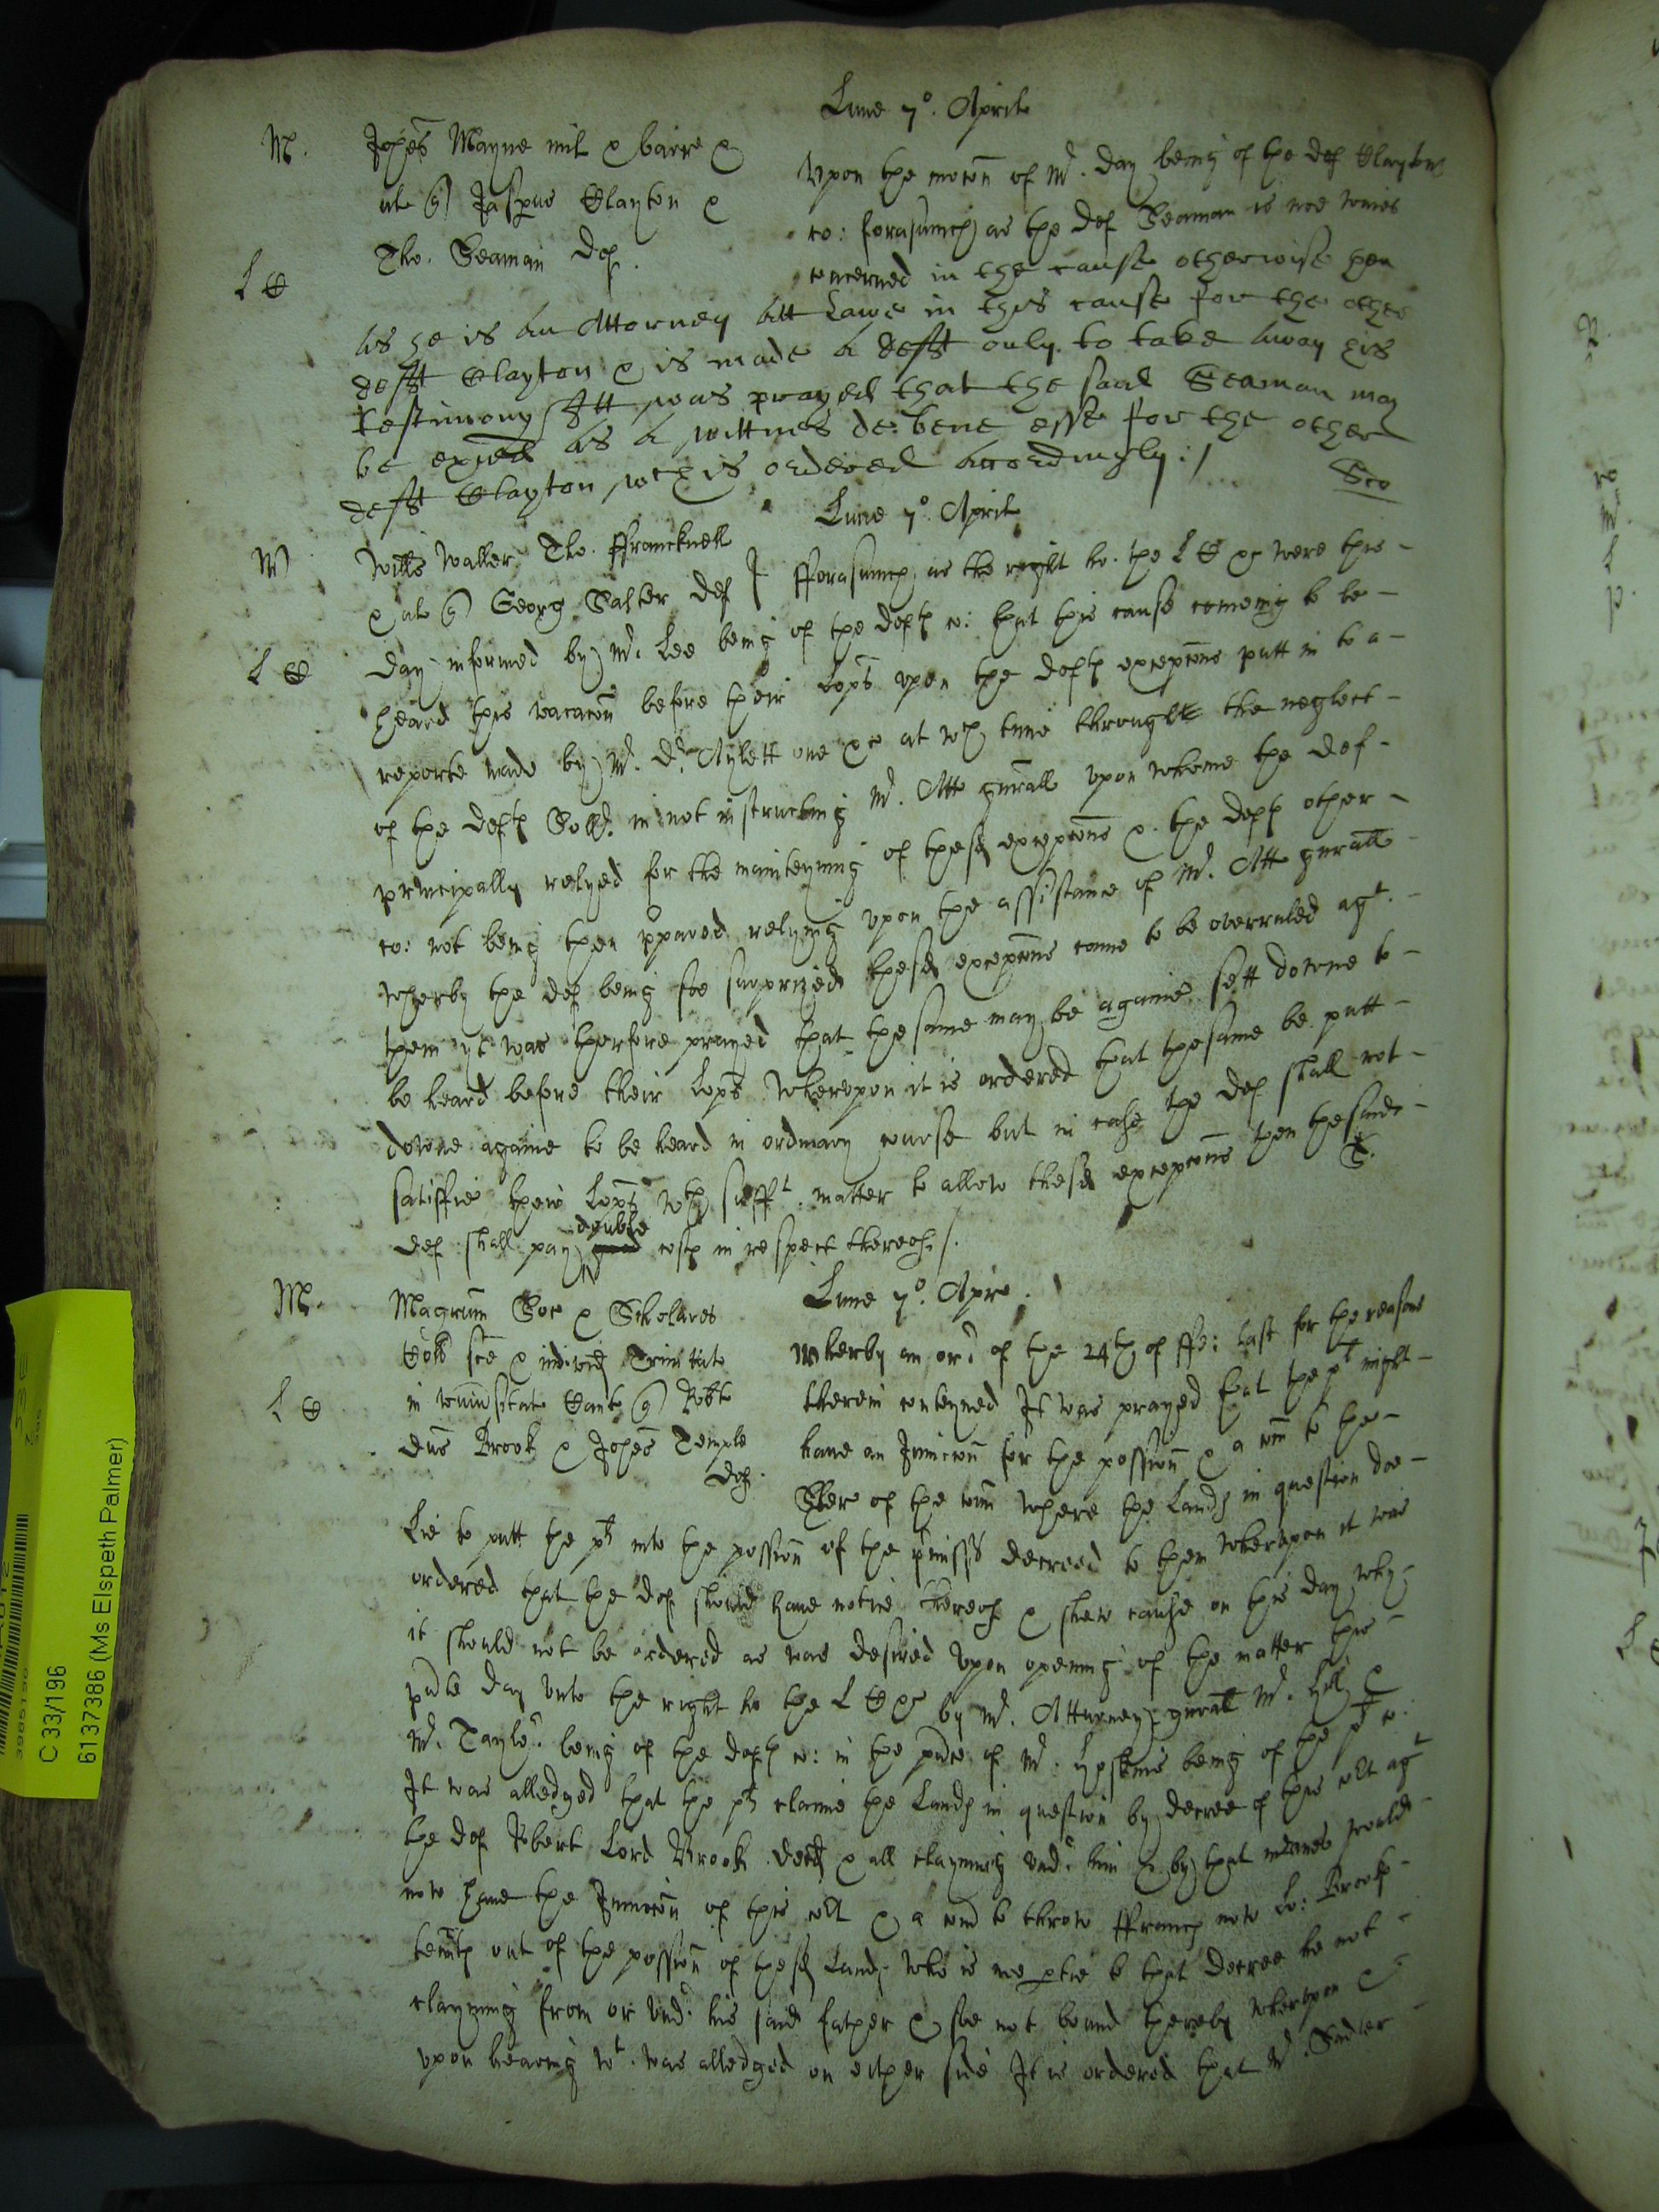 Lune 7o. Aprilis
M. Johes Mayne mil & barr &
al q) Jasperus Clayton &
Tho. Seaman def.
L C
Upon the mocon of Mr. Day being of the def Claytons
co: forasmuch as the def Seaman is noe waies
concerned in the cause otherwise then
as he is an Attorney att Lawe in this cause for the other
defft Clayton & is made a defft only to take away his
testimony Itt was prayed that the said Seaman may
be exied as a wittnes de: bene esse for the other
defft Clayton, wch is ordered accordingly:/
Lune 7o. Aprilis
W Wills Waller, Tho. ffrancknell
& al q) Georg Salter def
fforasmuch as the right ho. the L C &c were this
L C
day informed by Mr. Lee being of the defts co: that this cause comeing to be
heard this vacacon before their Lops upon the defts excepcons putt in to a
reporte made by Mr. Dr. Aylett one &c at wch time through the neglect
of the defts Sollr. in not instructing Mr. Att gnrall upon whome the def
principally relyed for the mainteyning of these excepcons & the defts other
co: not being then ppared relying upon the assistance of Mr. Att gnrall
wherby the def being soe surprized these excepcons came to be overruled agt.
them yt was therfore prayed that the same may be againe sett downe to
be heard before their Lops wherupon it is ordered that the same be putt
downe againe to be heard in ordinary course but in case the def shall not
satisfie their Lops wth sufft. matter to allow these excepcons then the said
def shall pay double costs in respect thereof./.
Lune 7o. Apr.
M. Magrum Soc & Scholares
Coll sce & individ Trinitate
in univsitate Cant q) Robt
Dns Brook & Johes Temple
def.
L C
Wherby an ordr of the 24th of ffe: last for the reasons
therein conteyned It was prayed that the plt might
have an Iniuncon for the possion & a com to the
Sher of the com where the Lands in question doe
Lie to putt the plts into the possion of the primiss decreed to them wherupon it was
ordered that the def should have notice thereof & shew cause on this day why
it should not be ordered as was desired Upon opening of the matter this
pnte day unto the right ho the L C &c by Mr. Atturney gnrall Mr.
Mr. Taylor. being of the defts co: in the pnce of Mr. Hoskins being of the plts co.
It was alledged that the plts claime the Lands in question by decree of this Cort agt
the def Robert Lord Brook decd & all clayming undr. him & by that meanes would
now have the Iniuncon of this Cort & a com to throw ffrancis now Lo: Brooks
tennts out of the possion of these Lands who is noe ptie to that decree he not
clayming from or undr. his said father & soe not bound thereby wherupon &
upon hearing wt. was alledged on either side It is ordered that Mr. Sadler
C33/196
6137386 (Ms Elspeth Palmer)